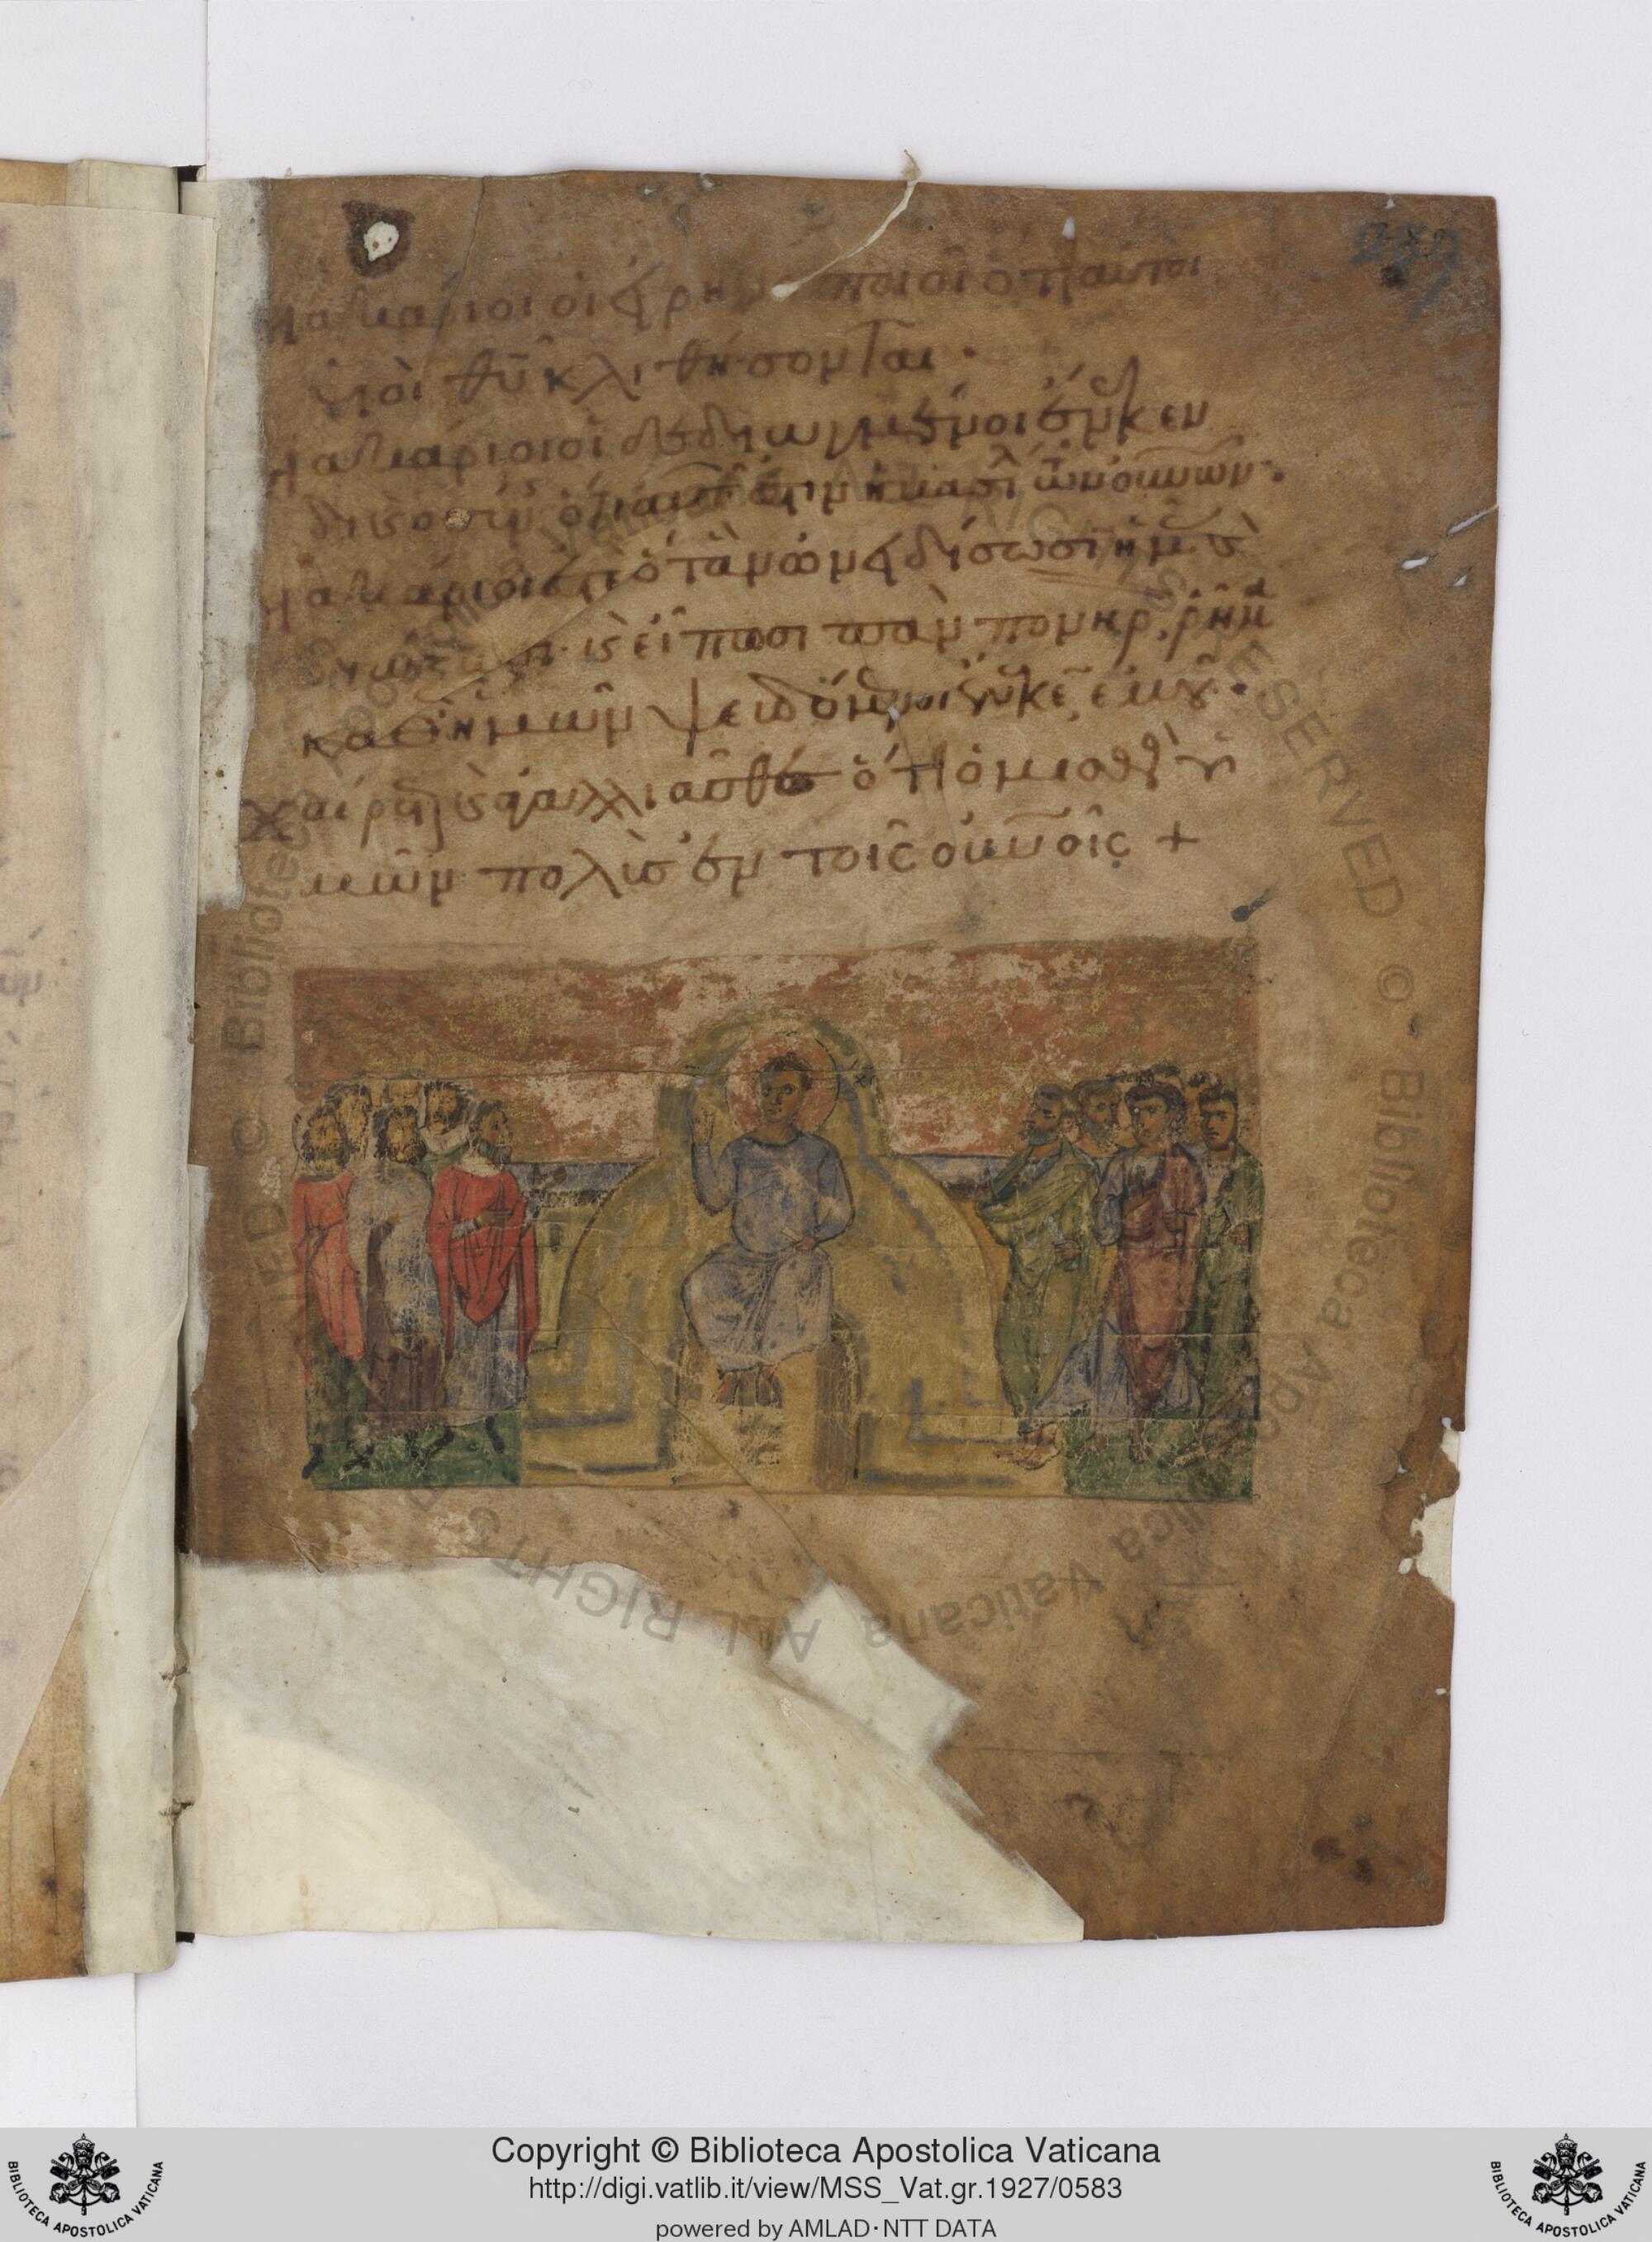 289
Μακάριοι οἱ εἰρην ποιοὶ ὅτι αὐτοὶ
υἱοὶ θῦ κλιθήσονται·
Μακάριοι οἱ δεδιωγμένοι ἕνκεν
δικεοσύν ὅτι αὐτ ἐστιν ἡ βασιλ τῶν οὐνῶν·
Μακάριοί ἐστε ὅταν ὀνειδίσωσιν ἡμᾶς
διώξωσιν κ εἴπωσι πᾶν πονηρ ῥῆμα
καθ ἡμῶν ψευδόμενοι ἕνεκεν ἐμοῦ·
χαίρετε κ ἀγαλλιᾶσθε ὅτι ὁ μισθὸς ἡ
μῶν πολὺς ἐν τοῖς οὐνοῖς +
Copyright © Biblioteca Apostolica Vaticana
http://digi.vatlib.it/view/MSS_Vat.gr.1927/0583
powered by AMLAD·NTT DATA
BIBLIOTECA APOSTOLICA VATICANA
BIBLIOTECA APOSTOLICA VATICANA